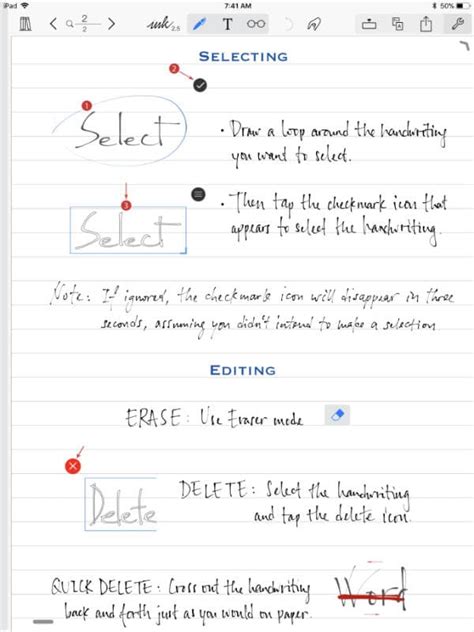 iPad 7:41 AM 50%
2
2
ink 2.5
T
SELECTING
2
1
Select
• Draw a loop around the handwriting
you want to select.
3
Select
• Then tap the checkmark icon that
appears to select the handwriting.
Note: If ignored, the checkmark icon will disappear in three
seconds, assuming you didn't intend to make a selection
EDITING
ERASE: Use Eraser mode
Delete
DELETE: Select the handwriting
and tap the delete icon.
QUICK DELETE: Cross out the handwriting
back and forth just as you would on paper.
Word